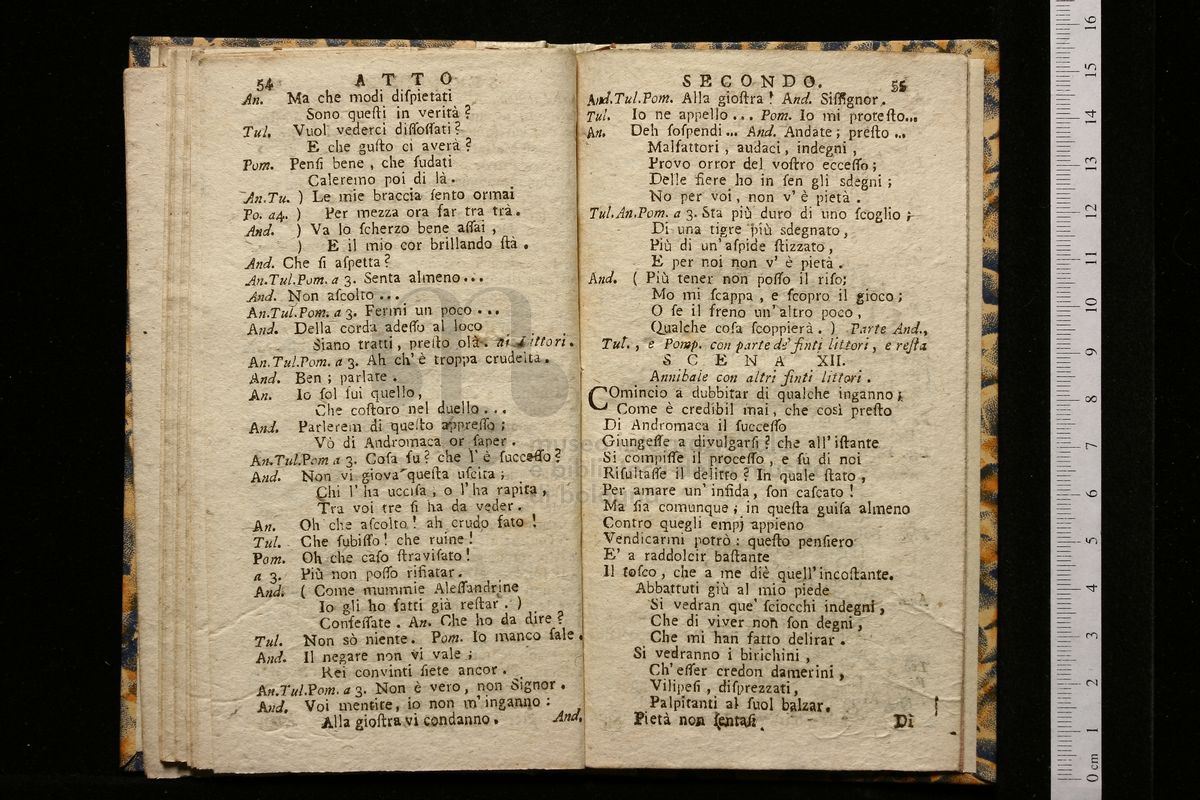 54 ATTO
An. Ma che modi diſpietati
Sono queſti in verità?
Tul. Vuol vederci diſſoſſati?
E che guſto ci averà?
Pom. Penſi bene, che ſudati
Caleremo poi di là.
An.Tu. ) Le mie braccia ſento ormai
Po. a4. ) Per mezza ora far tra trà.
And. ) Va lo ſcherzo bene aſſai,
) E il mio cor brillando ſtà.
And. Che ſi aſpetta?
An.Tul.Pom. a 3. Senta almeno...
And. Non aſcolto...
An.Tul.Pom. a 3. Fermi un poco...
And. Della corda adeſſo al loco
Siano tratti, preſto olà. ai Littori.
An.Tul.Pom. a 3. Ah ch'è troppa crudelta.
And. Ben; parlate.
An. Io ſol fui quello,
Che coſtoro nel duello...
And. Parlerem di queſto appreſſo;
Vò di Andromaca or ſaper.
An.Tul.Pom a 3. Coſa fu? che l'è ſucceſſo?
And. Non vi giova queſta uſcita;
Chi l'ha ucciſa, o l'ha rapita,
Tra voi tre ſi ha da veder.
An. Oh che aſcolto! ah crudo fato!
Tul. Che ſubiſſo! che ruine!
Pom. Oh che caſo ſtraviſato!
a 3. Più non poſſo rifiatar.
And. ( Come mummie Aleſſandrine
Io gli ho fatti già reſtar. )
Confeſſate. An. Che ho da dire?
Tul. Non sò niente. Pom. Io manco ſale.
And. Il negare non vi vale;
Rei convinti ſiete ancor.
An.Tul.Pom. a 3. Non è vero, non Signor.
And. Voi mentite, io non m'inganno:
Alla gioſtra vi condanno. And.
SECONDO. 55
And.Tul.Pom. Alla gioſtra! And. Siſſignor.
Tul. Io ne appello... Pom. Io mi proteſto...
An. Deh ſoſpendi... And. Andate; preſto...
Malfattori, audaci, indegni,
Provo orror del voſtro ecceſſo;
Delle fiere ho in ſen gli sdegni;
No per voi, non v'è pietà.
Tul.An.Pom. a 3. Sta più duro di uno ſcoglio;
Di una tigre più sdegnato,
Più di un'aſpide ſtizzato,
E per noi non v'è pietà.
And. ( Più tener non poſſo il riſo;
Mo mi ſcappa, e ſcopro il gioco;
O ſe il freno un'altro poco,
Qualche coſa ſcoppierà. ) Parte And.,
Tul., e Pomp. con parte de' finti littori, e reſta
SCENA XII.
Annibale con altri finti littori.
COmincio a dubbitar di qualche inganno;
Come è credibil mai, che così preſto
Di Andromaca il ſucceſſo
Giungeſſe a divulgarſi? che all'iſtante
Si compiſſe il proceſſo, e fu di noi
Riſultaſſe il delitto? In quale ſtato,
Per amare un'infida, ſon caſcato!
Ma ſia comunque; in queſta guiſa almeno
Contro quegli empj appieno
Vendicarmi potrò: queſto penſiero
E' a raddolcir baſtante
Il toſco, che a me diè quell'incoſtante.
Abbattuti giù al mio piede
Si vedran que' ſciocchi indegni,
Che di viver non ſon degni,
Che mi han fatto delirar.
Si vedranno i birichini,
Ch'eſſer credon damerini,
Vilipeſi, diſprezzati,
Palpitanti al ſuol balzar.
Pietà non ſentaſi Dì
0 cm 1 2 3 4 5 6 7 8 9 10 11 12 13 14 15 16